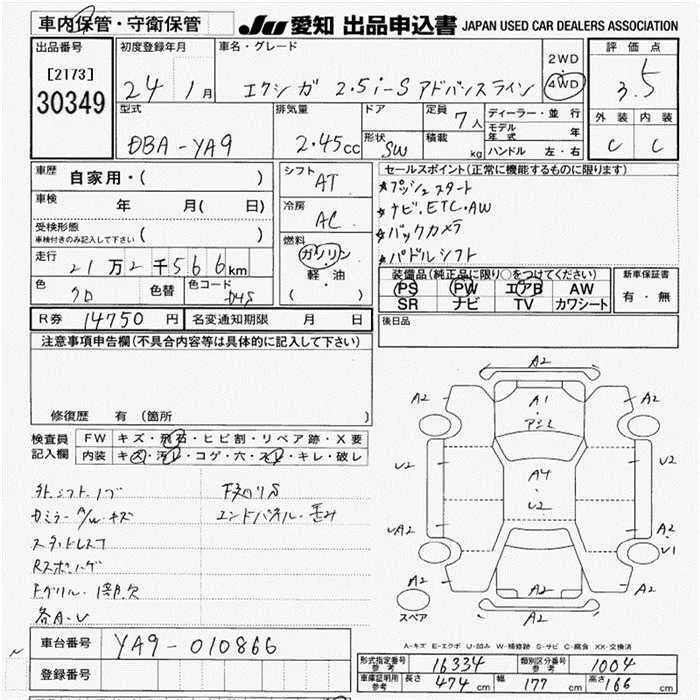 車内保管・守衛保管
JU 愛知 出品申込書 JAPAN USED CAR DEALERS ASSOCIATION
出品番号
[2173]
30349
初度登録年月
24 1月
車名・グレード
エクシーガ 2.5i-S アドバンスライン
2WD
4WD
評価点
3.5
外装 内装
C C
型式
DBA-YA9
排気量
2.45cc
ドア
形状
SW
定員 7人
積載 kg
ディーラー・並行
モデル年式 年
ハンドル 左・右
車歴 自家用・( )
車検 年 月( 日)
受検形態
車検付きのみ記入して下さい ( )
走行
21万2千566km
色 クロ 色替 色コード D4S
シフト AT
冷房 AC
燃料
ガソリン
軽・油
( )
セールスポイント(正常に機能するものに限ります)
★プッシュスタート
★ナビ.ETC.AW
★バックカメラ
★パドルシフト
装備品(純正品に限り○をつけてください)
PS PW エアB AW
SR ナビ TV カワシート
新車保証書
有・無
R券 14750円 名変通知期限 月 日
後日品
注意事項申告欄(不具合内容等は具体的に記入して下さい)
修復歴 有(箇所 )
検査員記入欄
FW キズ・飛石・ヒビ割・リペア跡・X要
内装 キズ・汚レ・コゲ・穴・スレ・キレ・破レ
外シフトノブ
下回りS
カミラーA/W.キズ
エンドパネル.歪み
スタッドレス
Rスポ.ハゲ
Fグリル.1部欠
各A.U
A2
A2 A1 A2
アシミ
U2 A4 U2
U2
UA2 A2
U1
A2 A2 A2
スペア
A2
A-キズ E-エクボ U-凹み W-補修跡 S-サビ C-腐食 XX-交換済
車台番号 YA9-010866
登録番号
形式指定番号参考 16334 類別区分番号参考 1004
車庫証明用参考 長さ 474cm 幅 177cm 高さ 166cm